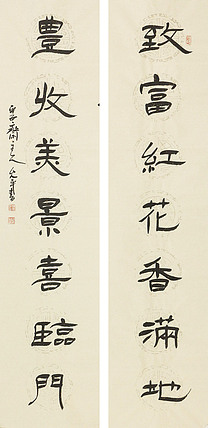 致富紅花香滿地
豊收美景喜臨門